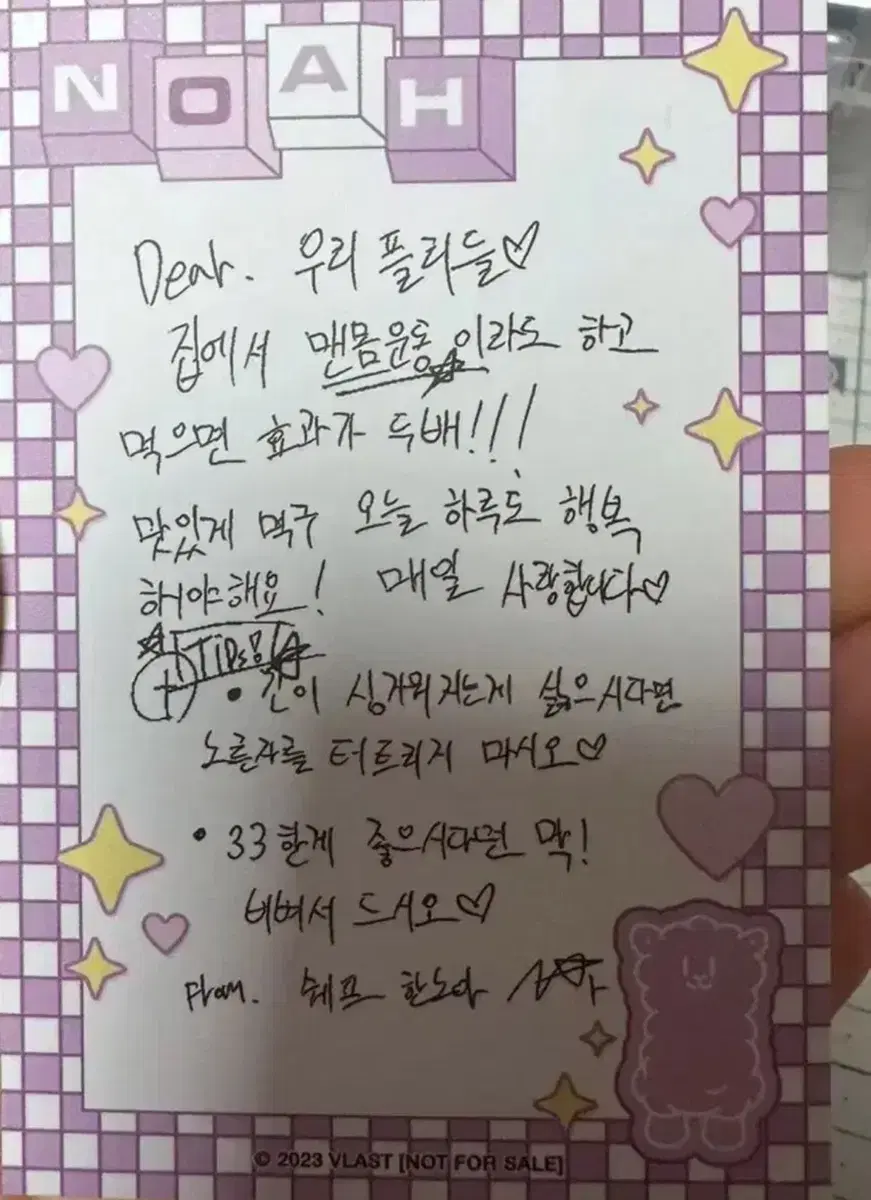 NOAH
Dear. 우리 플리들♡
집에서 맨몸운동이라도 하고
먹으면 효과가 두배!!!
맛있게 먹구 오늘 하루도 행복
해야해요! 매일 사랑합니다♡
Tips!
• 간이 싱거워지는게 싫으시다면
노른자를 터트리지 마시오♡
• 33한게 좋으시다면 막!
비벼서 드시오♡
From. 쉐프 한노아
© 2023 VLAST [NOT FOR SALE]